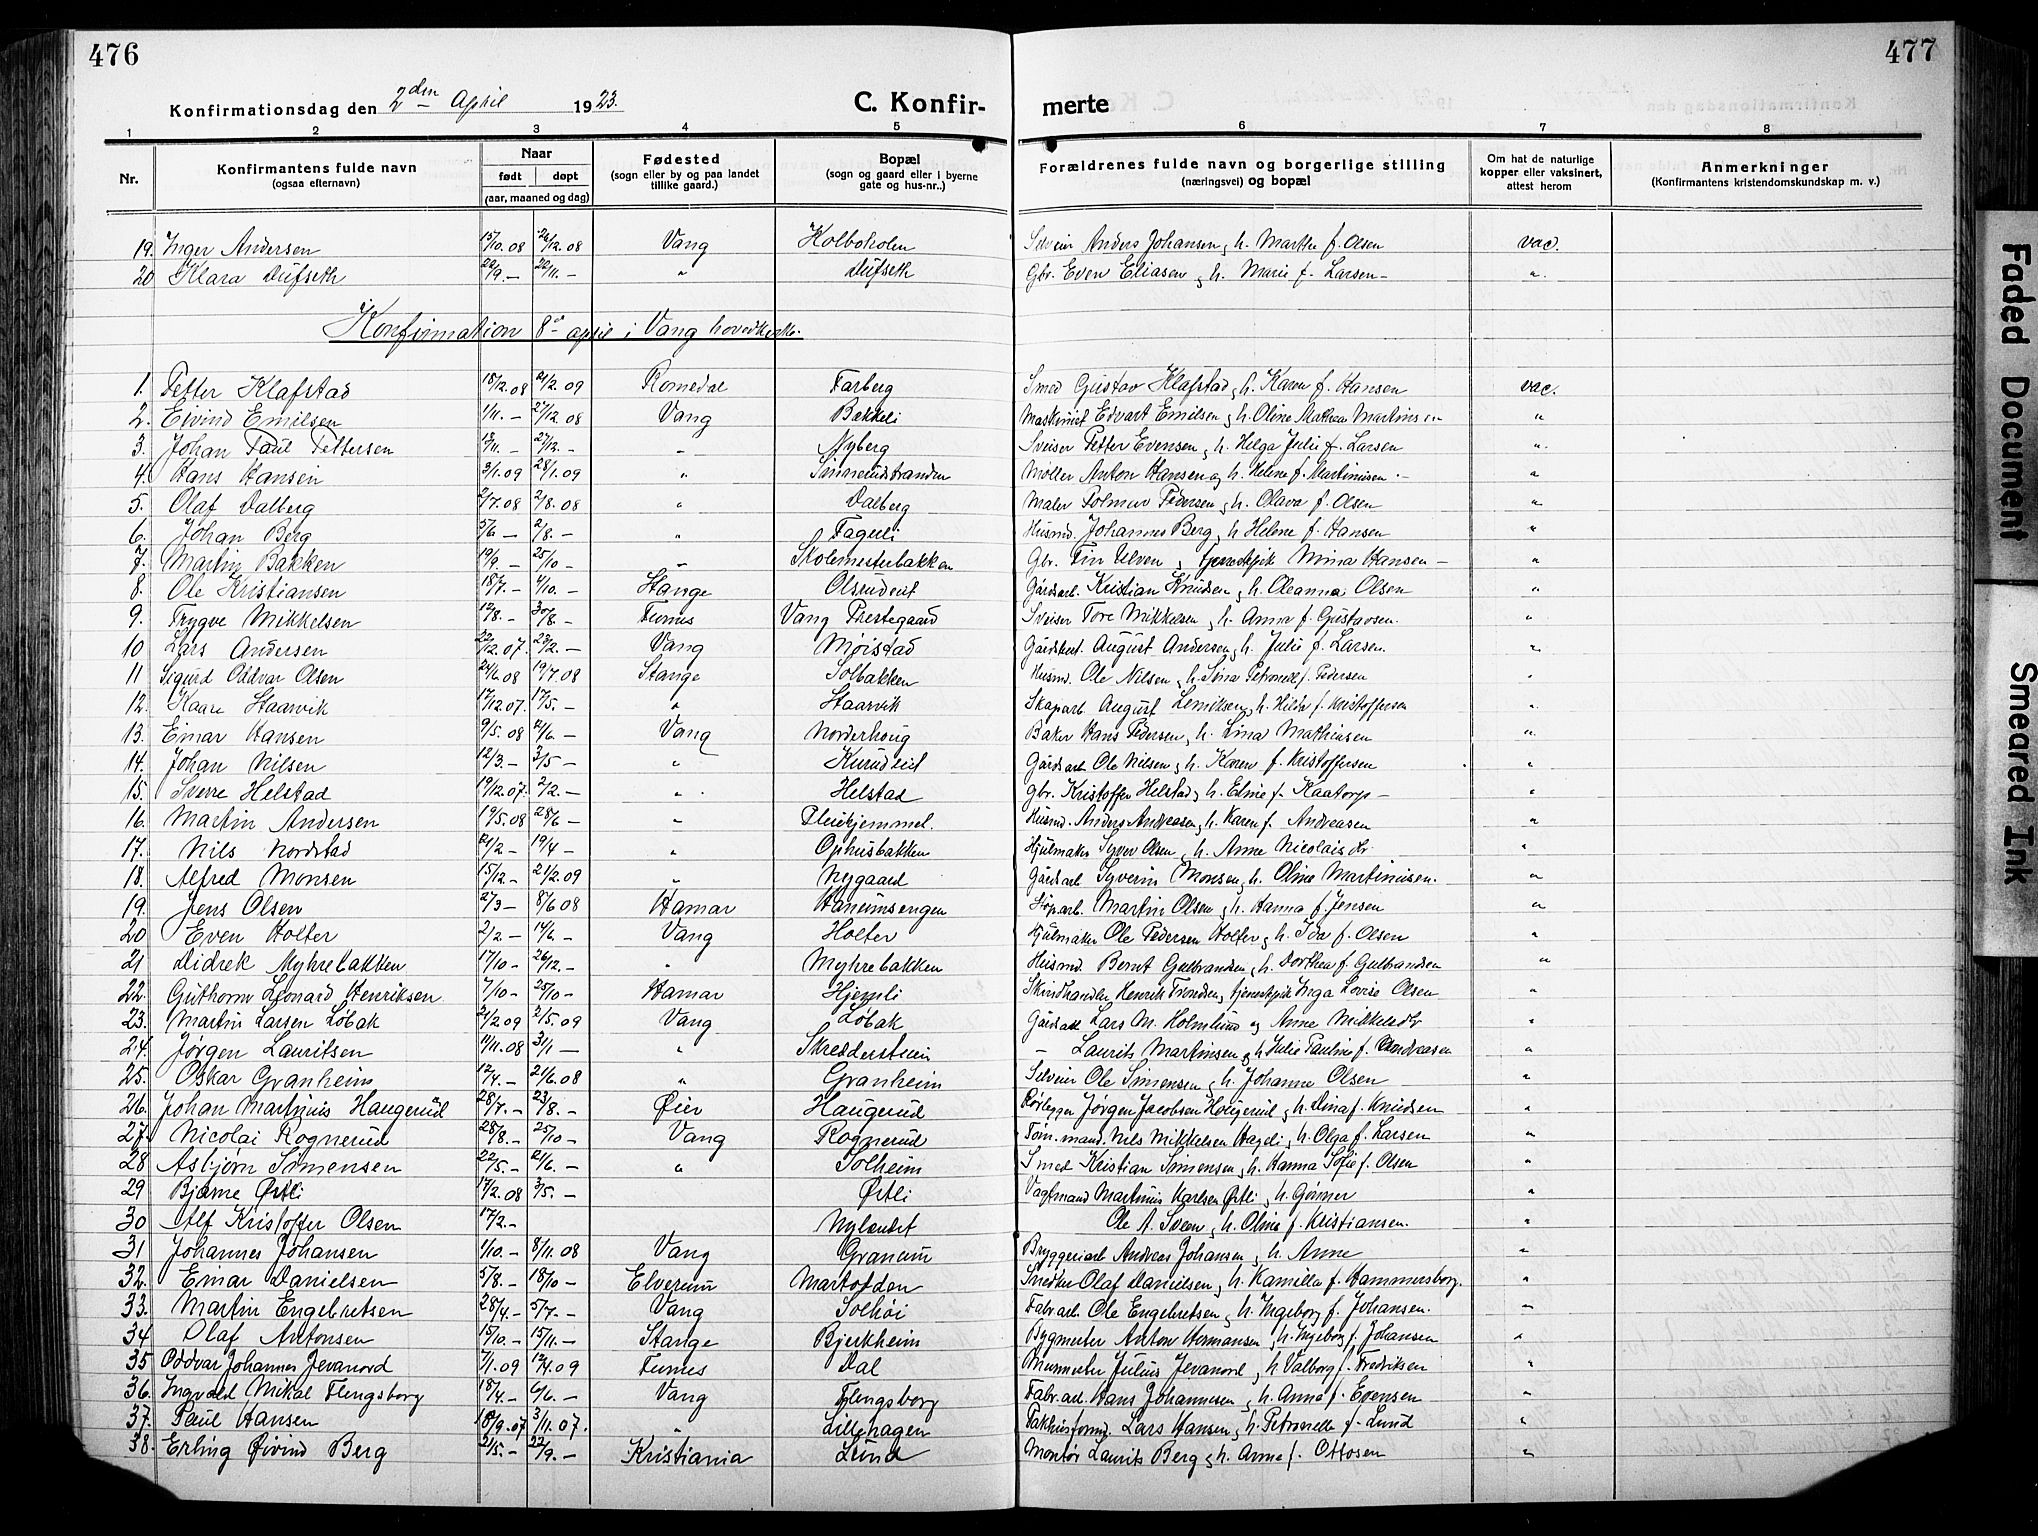 476
477
Konfirmationsdag den 2den April 1923.
C. Konfir-
merte
1 2 3 4 5 6 7 8
Nr. Konfirmantens fulde navn (ogsaa efternavn) Naar født døpt (aar, maaned og dag) Fødested (sogn eller by og paa landet tillike gaard.) Bopæl (sogn og gaard eller i byerne gate og hus-nr..) Forældrenes fulde navn og borgerlige stilling (næringsvei) og bopæl Om hat de naturlige kopper eller vaksinert, attest herom Anmerkninger (Konfirmantens kristendomskundskap m. v.)
19. Inger Andersen 15/10.08 26/12.08 Vang Kolboholen Selveier Anders Johansen, h. Marthe f. Olsen vac.
20 Klara Dufseth 22/9.– 22/11.– " Dufseth Gbr. Even Eliasen, h. Marie f. Larsen –
Konfirmation 8de april i Vang hovedkirke.
1. Petter Klafstad 18/12.08 21/2.09 Romedal Farberg Smed Gustav Klafstad, h. Karen f. Hansen vac.
2. Eivind Emilsen 1/11.– 27/12.08 Vang Bækkeli Maskinist Edvart Emilsen, h. Oline Mathea Martinsen "
3. Johan Paul Pettersen 13/11.– 27/12.– " Nyberg Sveiser Petter Evensen, h. Helga Julie f. Larsen "
4. Hans Hansen 3/1.09 28/1.09 " Simerudstranden Møller Anton Hansen og h. Helene f. Martinusen "
5. Olaf Dalberg 2/7.08 2/8.08 " Dalberg Maler Polmar Pedersen, h. Olava f. Olsen "
6. Johan Berg 5/6 – 2/8.– " Fagerli Husmd. Johannes Berg, h. Helene f. Hansen "
7. Martin Bakken 19/9.– 25/10 – " Skolemesterbakken Gbr. Fin Ulven, tjenestpik Mina Hansen – "
8. Ole Kristiansen 18/7.– 4/10.– Stange Olsrudeit Gårdsarb. Kristian Knudsen, h. Oleanna Olsen "
9. Trygve Mikkelsen 12/8.– 30/8.– Furnes Vang Prestegaard Sveiser Tore Mikkelsen, h. Anna f. Gustavsen. "
10 Lars Andersen 22/12.07. 23/2.– Vang Møistad Gårdsbest. August Andersen, h. Julie f. Larsen. "
11 Sigurd Oddvar Olsen 24/6.08 19/7.08 Stange Solbakken Husmd. Ole Nilsen, h. Sina Petronelle f. Pedersen "
12. Kaare Staarvik 17/12.07. 17/5.– " Staarvik Skaparb. August Lemilsen, h. Hilda f. Kristoffersen "
13. Einar Hansen 9/5.08 21/6.– Vang Norderhoug Baker Hans Pedersen, h. Lina Mathiesen "
14. Johan Nilsen 12/3.– 3/5 – " Kurudeid Gårdsarb Ole Nilsen, h. Karen f. Kristoffersen "
15. Sverre Helstad 19/12.07. 2/2.– " Helstad Gbr. Kristoffer Helstad, h. Eline f. Kaatorp – "
16. Martin Andersen 19/5.08 28/6 – " Husmd. Anders Andreasen, h. Karen f. Andreasen "
17. Nils Nordstad 21/2 – 19/4 – " Ophusbakken Hjulmaker Syver Olsen, h. Anne Nicolaisdtr. "
18. Alfred Monsen 15/12.– 21/2.09 " Nygaard Gårdsarb Syverin Monsen, h. Oline Martinusen. "
19. Jens Olsen 27/3 – 8/6 08 Hamar Hanumsengen Høparb. Martin Olsen, h. Hanna f. Jensen "
20 Even Holter 2/2 – 14/6 – Vang Holter Hjulmaker Ole Pedersen Holter, h. Ida f. Olsen "
21 Didrek Myhrebakken 17/10 – 26/12.– " Myhrebakken Husmd. Bernt Gulbrandsen, h. Dorthea f. Gulbrandsen "
22. Guthorm Leonard Henriksen 7/10 – 25/10 – Hamar Hjemli Skindhandler Henrik Trondsen, tjenestpik Inga Lovise Olsen "
23. Martin Larsen Løbak 21/2.09 2/5.09 Vang Løbak Gårdsarb Lars M. Holmlund og Anne Mikkelsdtr "
24. Jørgen Lauritsen 11/11.08 31/1 – " Skreddersteuin – Laurits Martinsen, h. Julie Pauline f. Andreasen "
25. Oskar Granheim 12/4.– 21/6.08 " Granheim Selveier Ole Simensen, h. Johanne Olsen "
26. Johan Martinus Haugerud 28/7.– 23/8.– Øier Haugerud Rørlegger Jørgen Jacobsen Haugerud, h. Dina f. Knudsen "
27. Nicolai Rognerud 28/8.– 25/10 – Vang Rognerud Tøm.mand. Nils Mikkelsen Hagli, h. Olga f. Larsen "
28 Asbjørn Simensen 22/5.– 21/6.– " Solheim Smed Kristian Simensen, h. Hanna Sofie f. Olsen "
29 Bjarne Ørtli 17/2.08 3/5. – Ørtli Vagtmand Martinus Karlsen Ørtli, h. Gönner "
30 Alf Kristoffer Olsen 17/2.– Nylændet Ole A. Sveen, h. Oline f. Kristiansen. "
31 Johannes Johansen 1/10.– 8/11.08 Vang Granum Bryggeriarb Andreas Johansen, h. Anne "
32. Einar Danielsen 5/8.– 18/10 – Elverum Martodden Snedker Olaf Danielsen, h. Kamilla f. Hammersborg. "
33. Martin Engebretsen 28/4.– 5/7.– Vang Solhøi Fabr.arb. Ole Engebretsen, h. Ingeborg f. Johansen. "
34 Olaf Antonsen 15/10.– 15/11.– Stange Bjerkheim Bygmester Anton Hermansen, h. Ingeborg f. Johansen "
35 Oddvar Johannes Jevanord 7/1.09 12/4.09 Furnes Dal Murmester Julius Jevanord, h. Valborg f. Fredriksen "
36. Ingvald Mikal Flengsborg 18/4.– 6/6.– Vang Flengsborg Fabr.arb. Hans Johannesen, h. Anne f. Evensen "
37. Paul Hansen 18/9.07 3/11.07. " Lillehagen Pakhusformd. Lars Hansen, h. Petronelle f. Lund "
38. Erling Øivind Berg 21/5.– 22/9.– Kristiania Lund Montør Laurits Berg, h. Anne f. Ottosen "
Faded Document
Smeared Ink